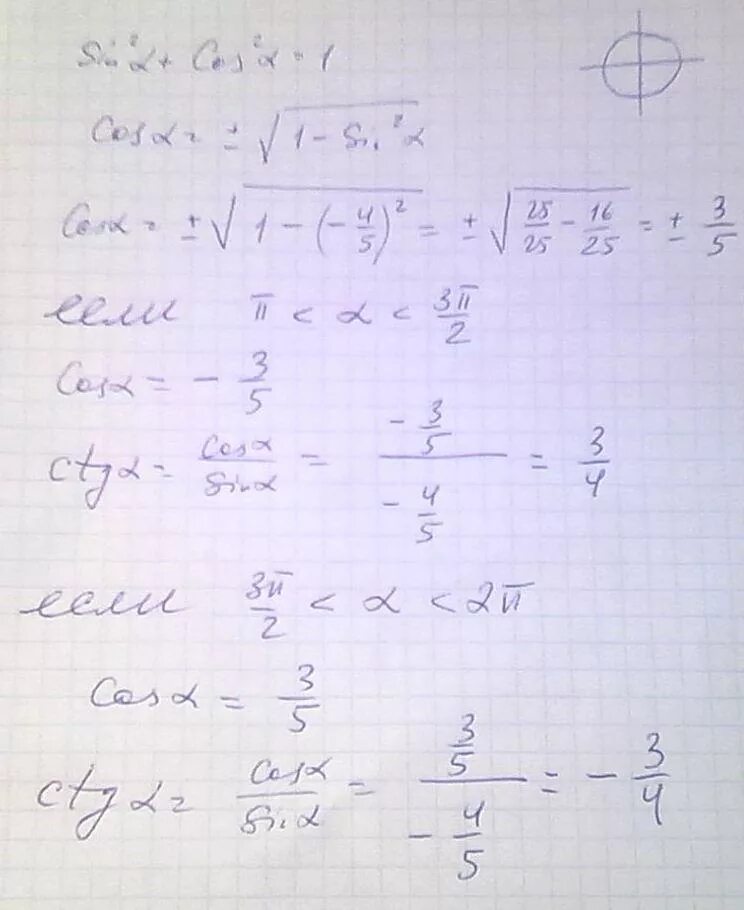 Sin²α + Cos²α = 1
Cosα = ± √(1 - Sin²α)
Cosα = ± √(1 - (-4/5)²) = ± √(25/25 - 16/25) = ± 3/5
если π < α < 3π/2
Cosα = - 3/5
ctgα = Cosα/Sinα = (- 3/5)/(- 4/5) = 3/4
если 3π/2 < α < 2π
Cosα = 3/5
ctgα = Cosα/Sinα = (3/5)/(- 4/5) = - 3/4